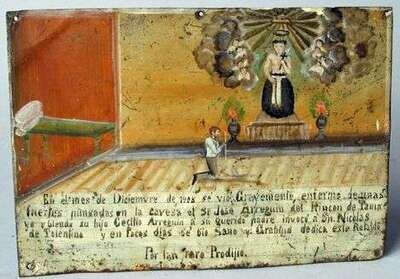 En el mes de Diciembre de 1905 se vio Gravemente, enfermo de unas
fuertes punsadas en la cavesa el Sr José Arreguin del Rincon de Tamá
yo y biendo su hijo Cecilio Arreguin a su querido padre invocó a Sn. Nicolas
de Tolentino y en pocos dias se bio Sano y Gratitud dedica este Retablo
Por tan raro Prodijio.